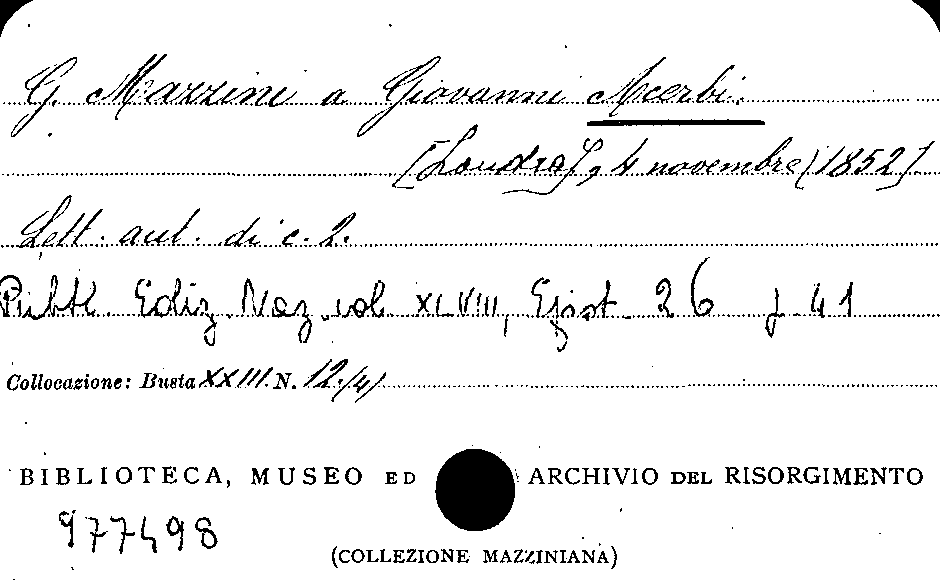 G. Mazzini a Giovanni Acerbi.
[Londra], 4 novembre [1852].
Lett. aut. di c. 2.
Pubbl. Ediz. Naz. vol. XLVIII, Epist. 26 p. 41
Collocazione: Busta XXIII N. 12./4/
BIBLIOTECA, MUSEO ED ARCHIVIO DEL RISORGIMENTO
977498
(COLLEZIONE MAZZINIANA)